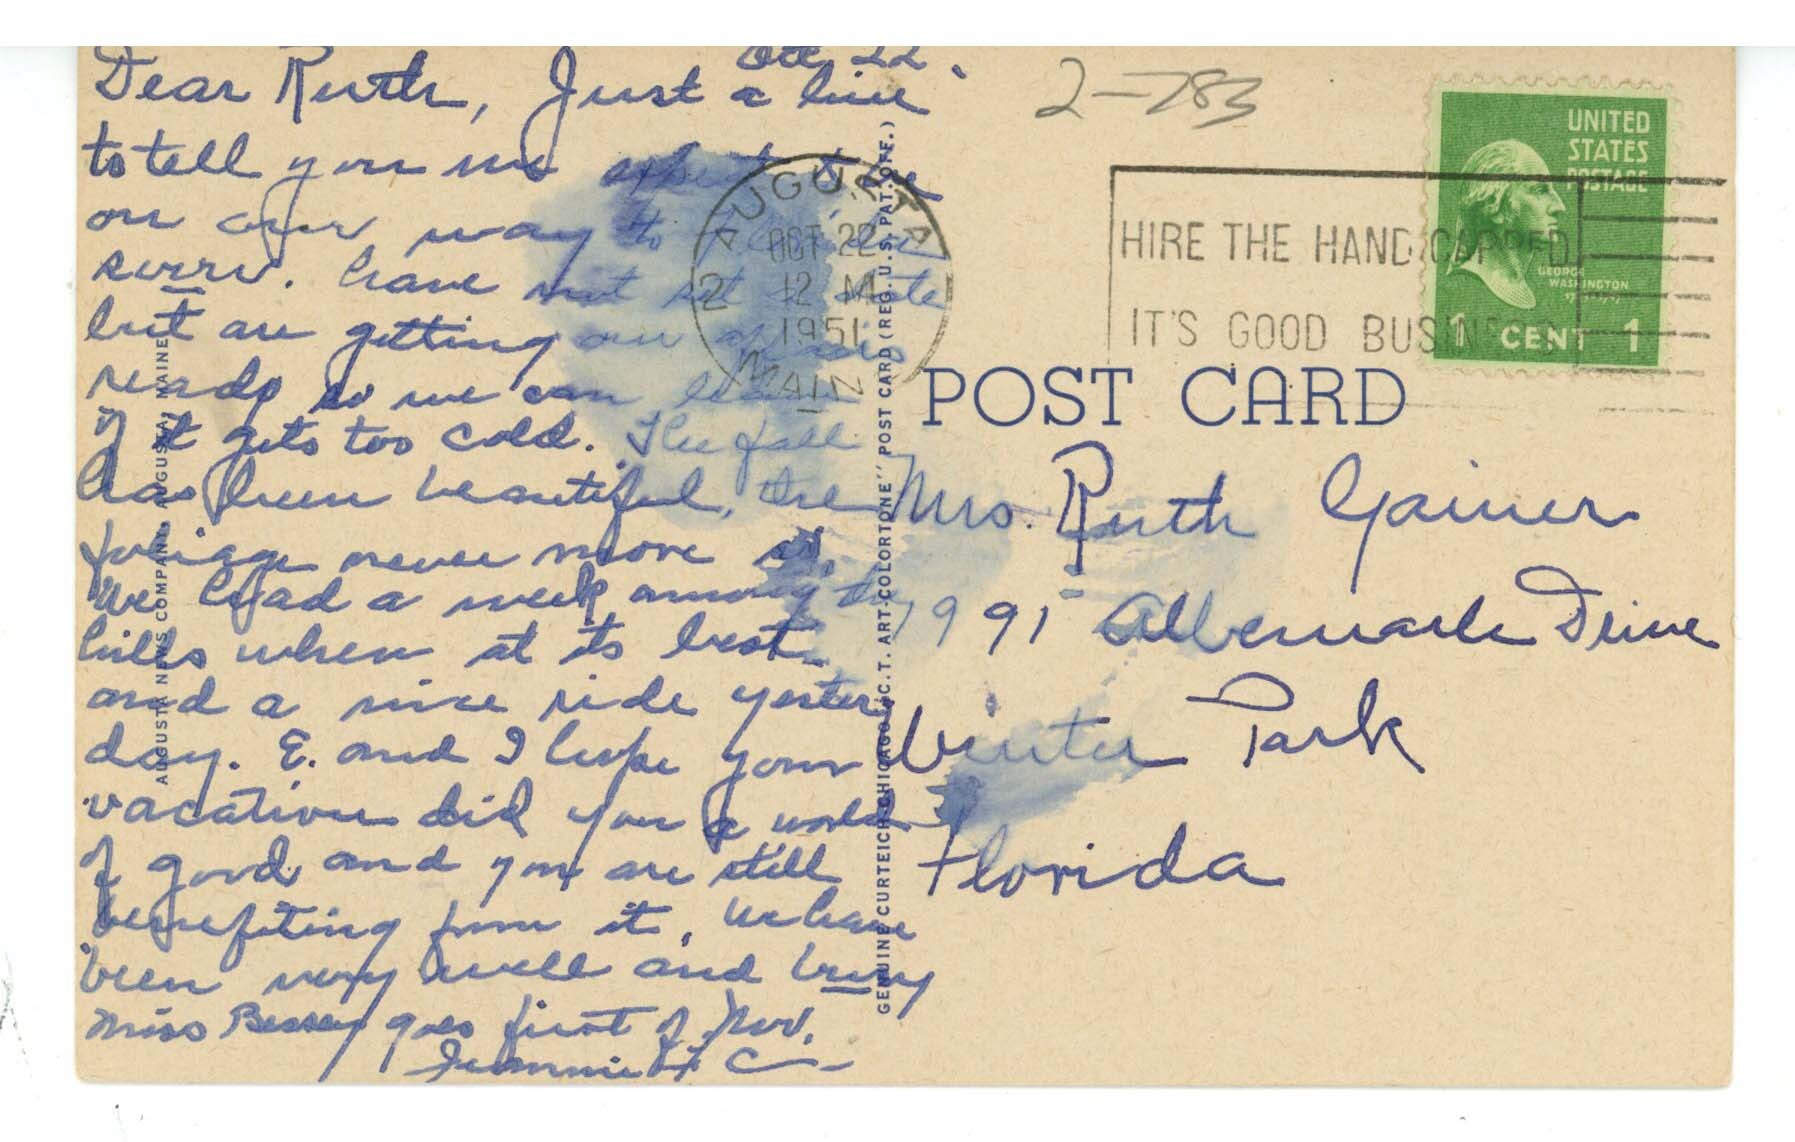 Oct 22.
Dear Ruth, Just a line
to tell you we expect to be
on our way to Florida
soon. have not set a date
but are getting our affairs
ready so we can leave
if it gets too cold. The fall
has been beautiful, the
foliage never more so.
We had a week among the
hills when at its best
and a nice ride yester
day. E. and I hope your
vacation did you a world
of good and you are still
benefiting from it. We have
been very well and busy
Miss Bessey goes first of Nov.
2-783
AUGUSTA
OCT 22
12 M
1951
MAINE
2
HIRE THE HANDICAPPED
IT'S GOOD BUSINESS
UNITED
STATES
POSTAGE
GEORGE
WASHINGTON
1 CENT 1
POST CARD
Mrs. Ruth Gainer
1991 Albemarle Drive
Winter Park
Florida
AUGUSTA NEWS COMPANY, AUGUSTA, MAINE
GENUINE CURTEICH-CHICAGO "C.T. ART-COLORTONE" POST CARD (REG. U.S. PAT. OFF.)